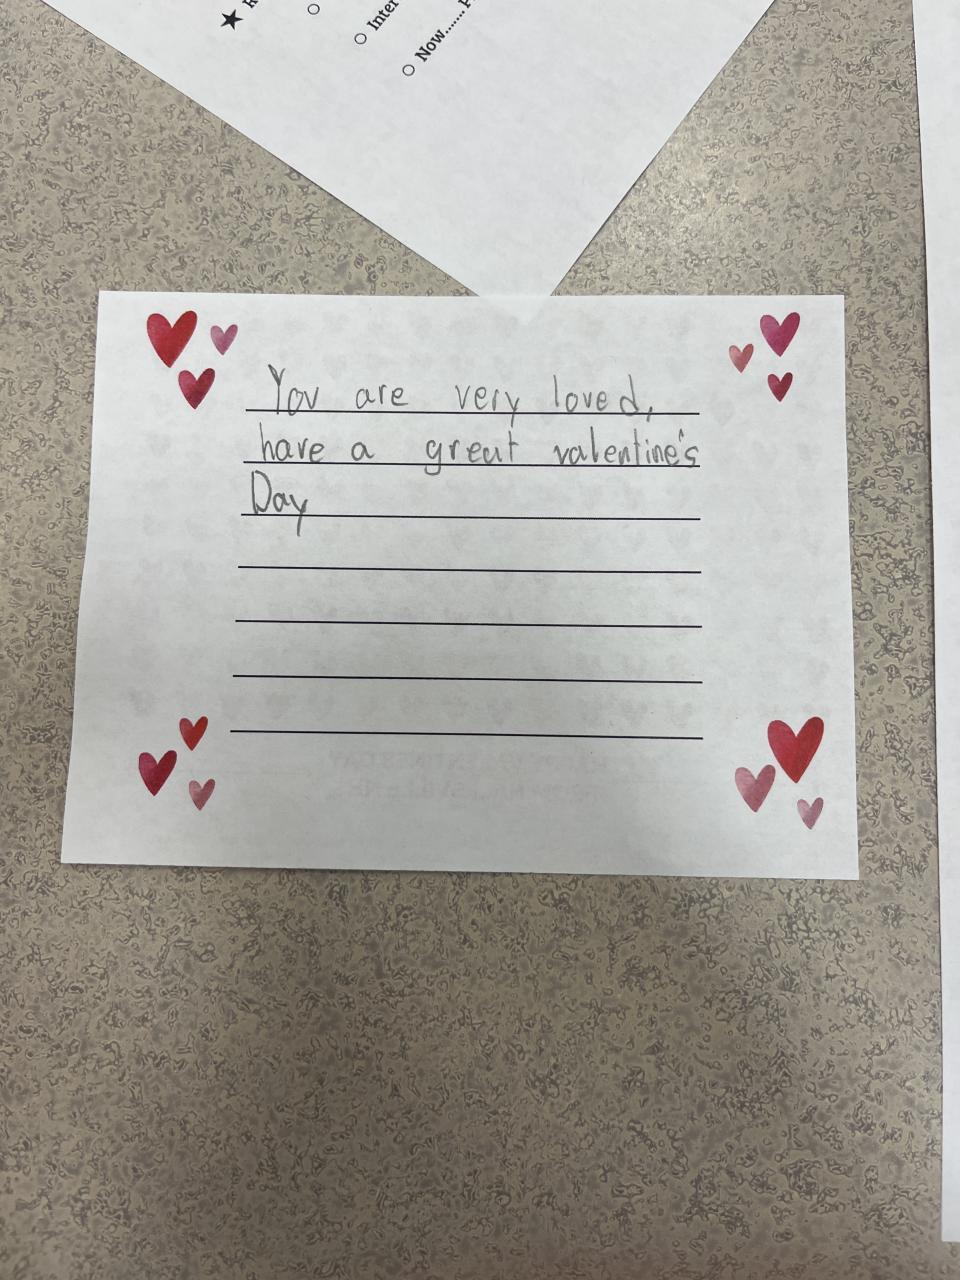 Now.......
You are very loved,
have a great valentine's
Day